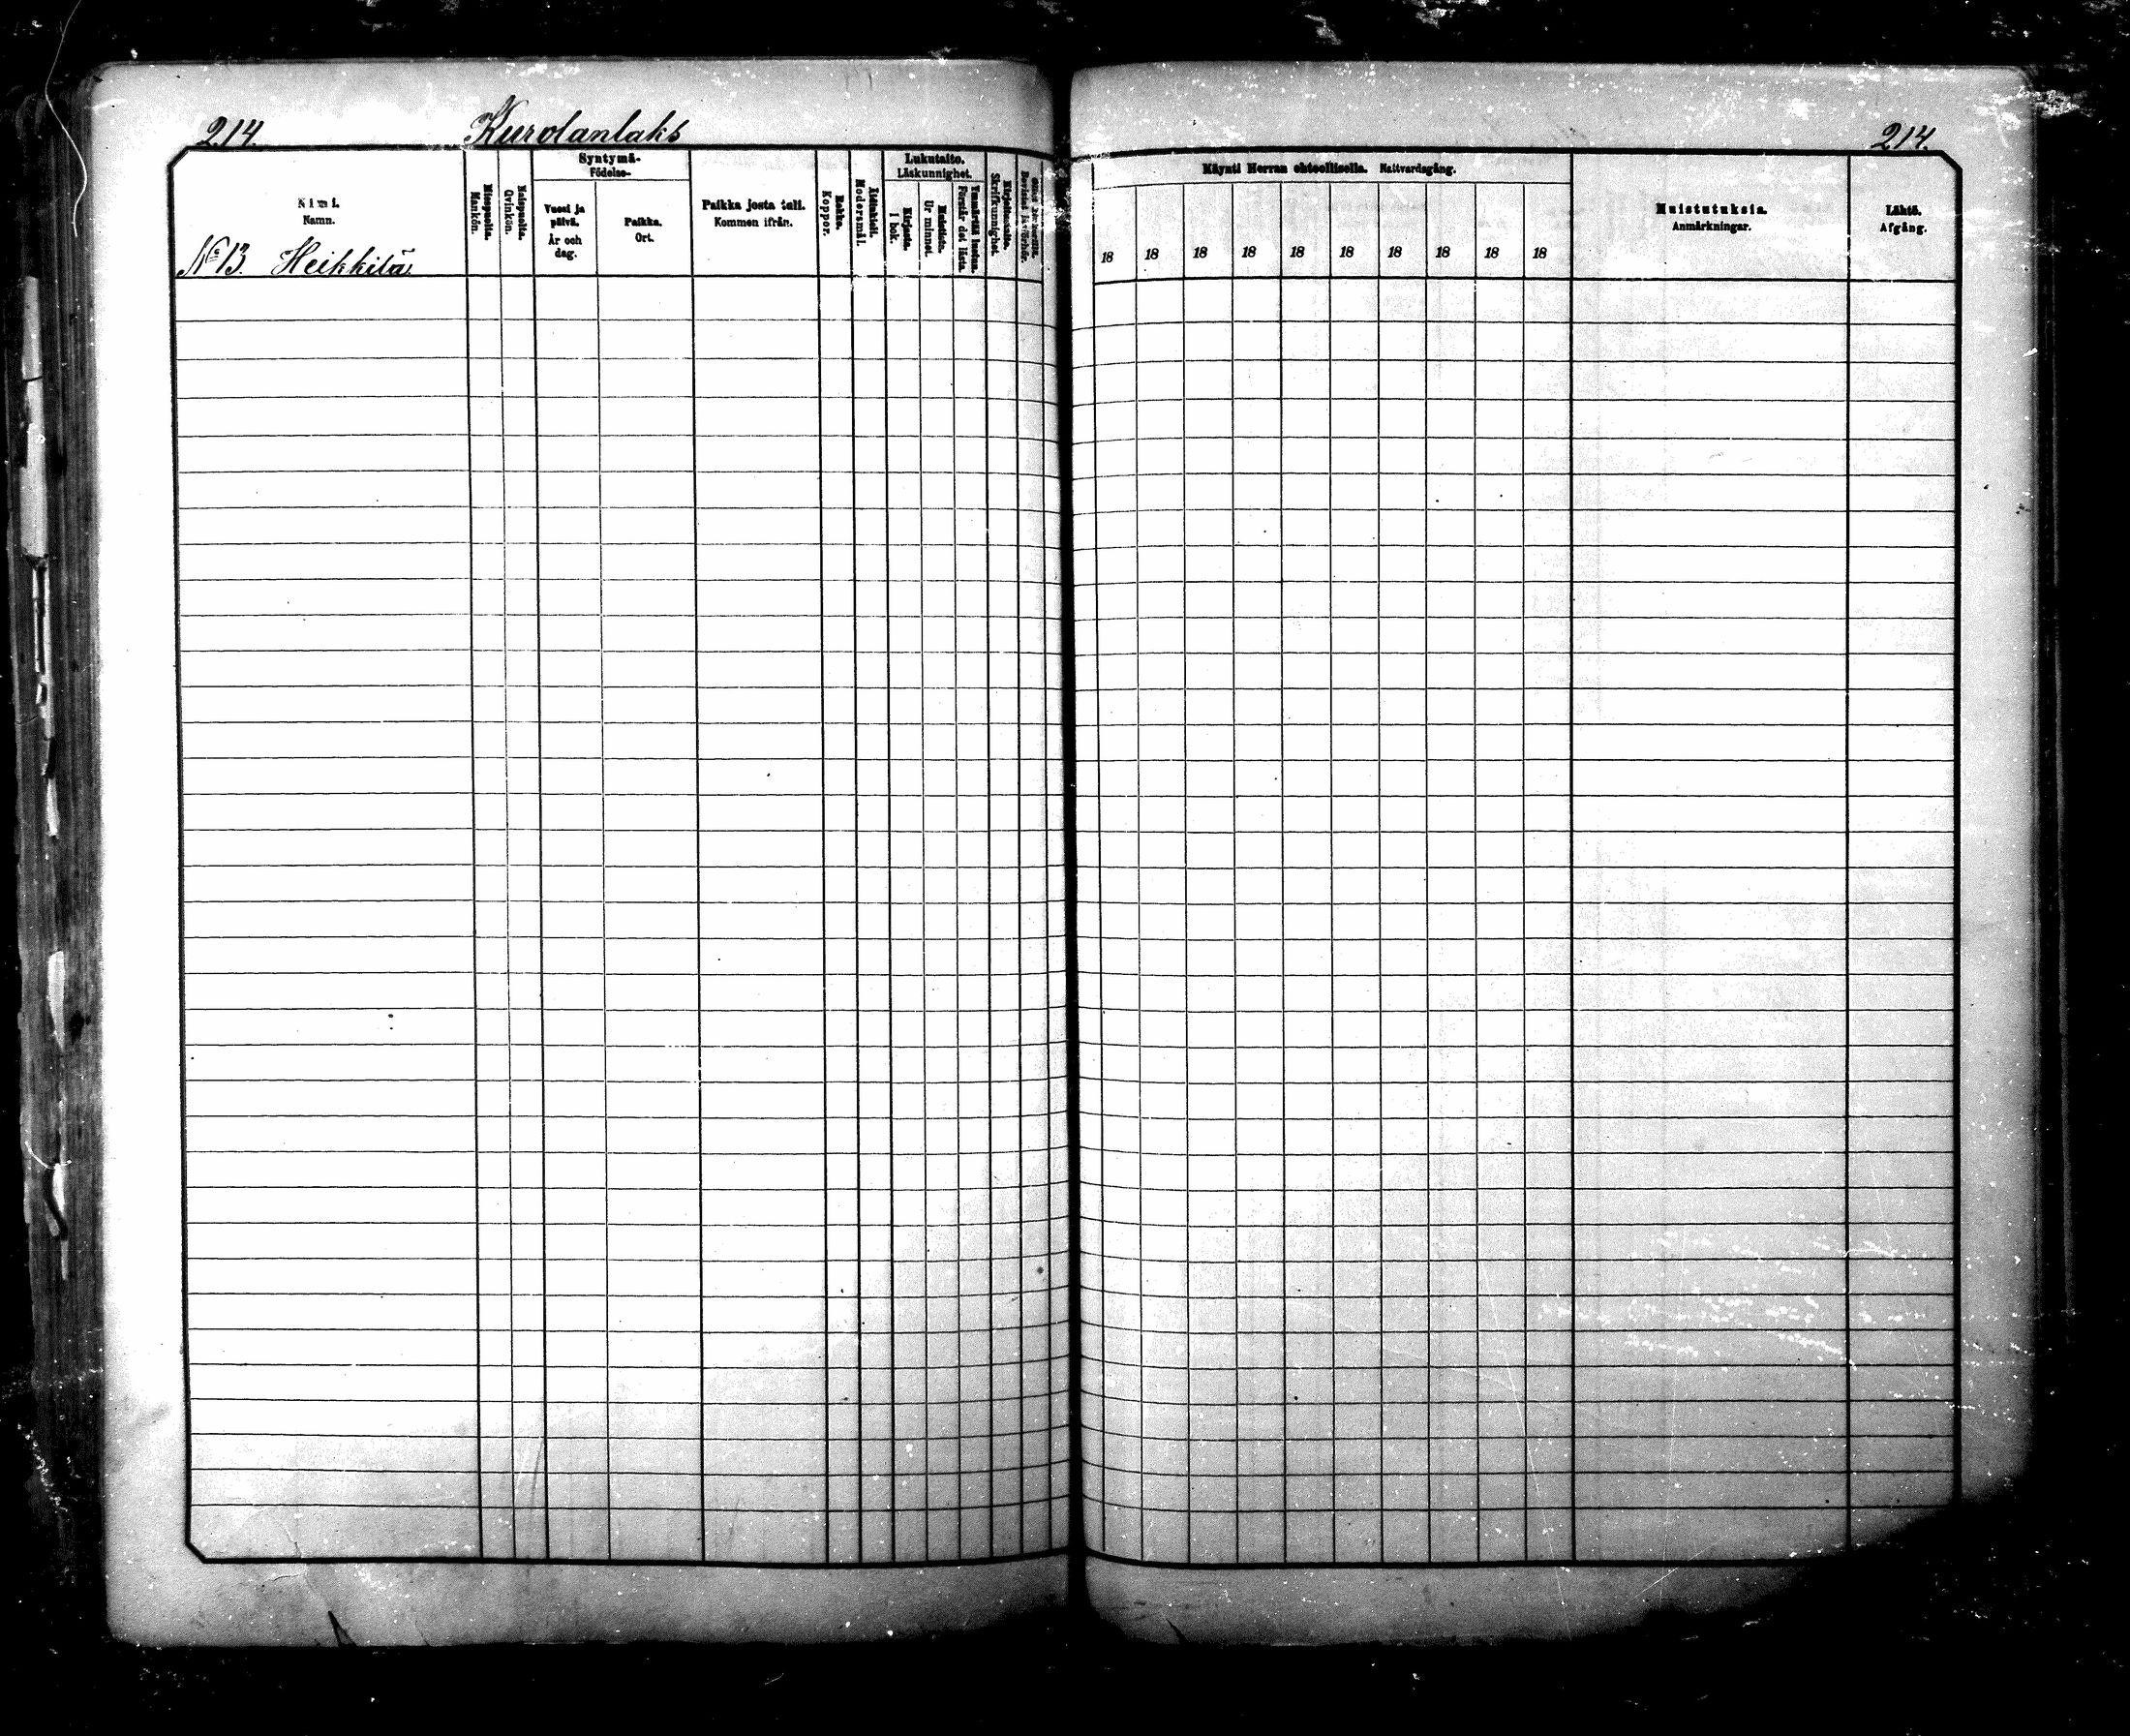 214.
Kurolanlaks
214.
Nimi.
Namn.
Miespuolia.
Mankön.
Naispuolia.
Qvinkön.
Syntymä-
Födelse-
Vuosi ja
päivä.
År och
dag.
Paikka.
Ort.
Paikka josta tuli.
Kommen ifrån.
Rokko.
Koppor.
Äidinkieli.
Modersmål.
Lukutaito.
Läskunnighet.
Kirjasta.
I bok.
Muistista.
Ur minnet.
Ymmärtää lukua.
Förstår det lästa.
Kirjoitustaito.
Skrifkunnighet.
Käynti Herran ehtoollisella. Nattvardsgång.
18 18 18 18 18 18 18 18 18 18
Muistutuksia.
Anmärkningar.
Lähtö.
Afgång.
No 13. Heikkilä.